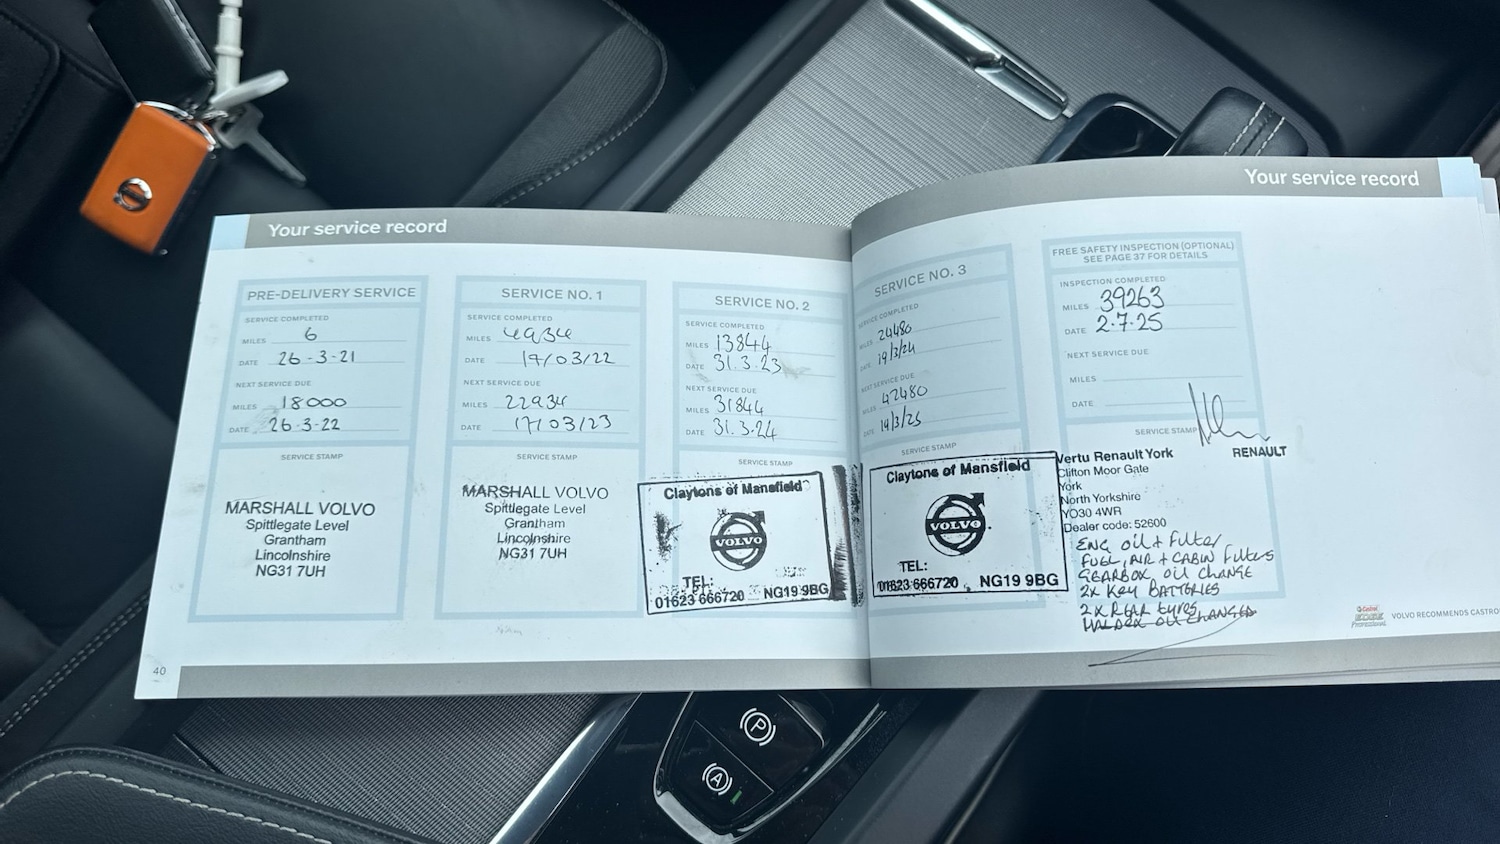 Your service record
PRE-DELIVERY SERVICE
SERVICE COMPLETED
MILES 6
DATE 26-3-21
NEXT SERVICE DUE
MILES 18000
DATE 26-3-22
SERVICE STAMP
MARSHALL VOLVO
Spittlegate Level
Grantham
Lincolnshire
NG31 7UH
40
SERVICE NO. 1
SERVICE COMPLETED
MILES 4934
DATE 17/03/22
NEXT SERVICE DUE
MILES 22934
DATE 17/03/23
SERVICE STAMP
MARSHALL VOLVO
Spittlegate Level
Grantham
Lincolnshire
NG31 7UH
SERVICE NO. 2
SERVICE COMPLETED
MILES 13844
DATE 31.3.23
NEXT SERVICE DUE
MILES 31844
DATE 31.3.24
SERVICE STAMP
Claytons of Mansfield
VOLVO
TEL:
01623 666720 NG19 9BG
Your service record
SERVICE NO. 3
SERVICE COMPLETED
MILES 24480
DATE 19/3/24
NEXT SERVICE DUE
MILES 42480
DATE 19/3/25
SERVICE STAMP
Claytons of Mansfield
VOLVO
TEL:
01623 666720 NG19 9BG
FREE SAFETY INSPECTION (OPTIONAL)
SEE PAGE 37 FOR DETAILS
INSPECTION COMPLETED:
MILES 39263
DATE 2.7.25
NEXT SERVICE DUE:
MILES
DATE
SERVICE STAMP
Vertu Renault York
RENAULT
Clifton Moor Gate
York
North Yorkshire
YO30 4WR
Dealer code: 52600
ENG oil + Filter
FUEL, AIR + CABIN Filters
GEARBOX oil CHANGE
2x Key BATTERIES
2 x REAR tyres
HALDEX oil CHANGED
Castrol
EDGE
Professional
VOLVO RECOMMENDS CASTRO
P
A